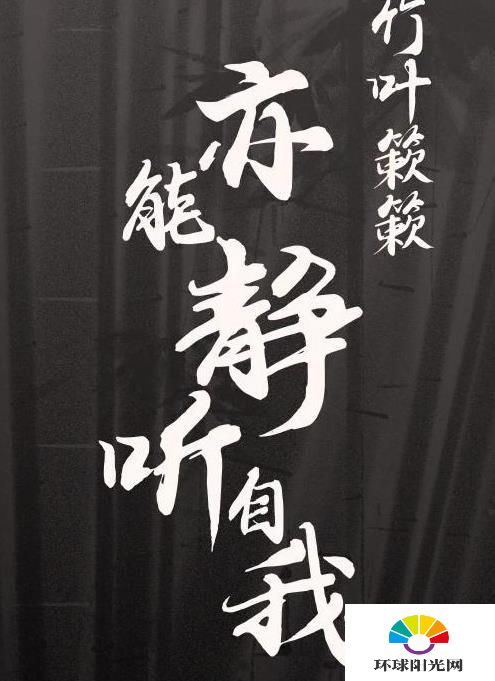 竹叶簌簌
亦能静听自我
环球阳光网